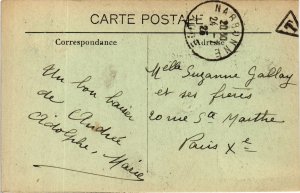 CARTE POSTALE
NARBONNE
AUDE
Correspondance
Adresse
Un bon baiser
de Andrée
Adolphe, Marie
Melle Suzanne Gallay
et ses frères
20 rue Ste Marthe
Paris Xe